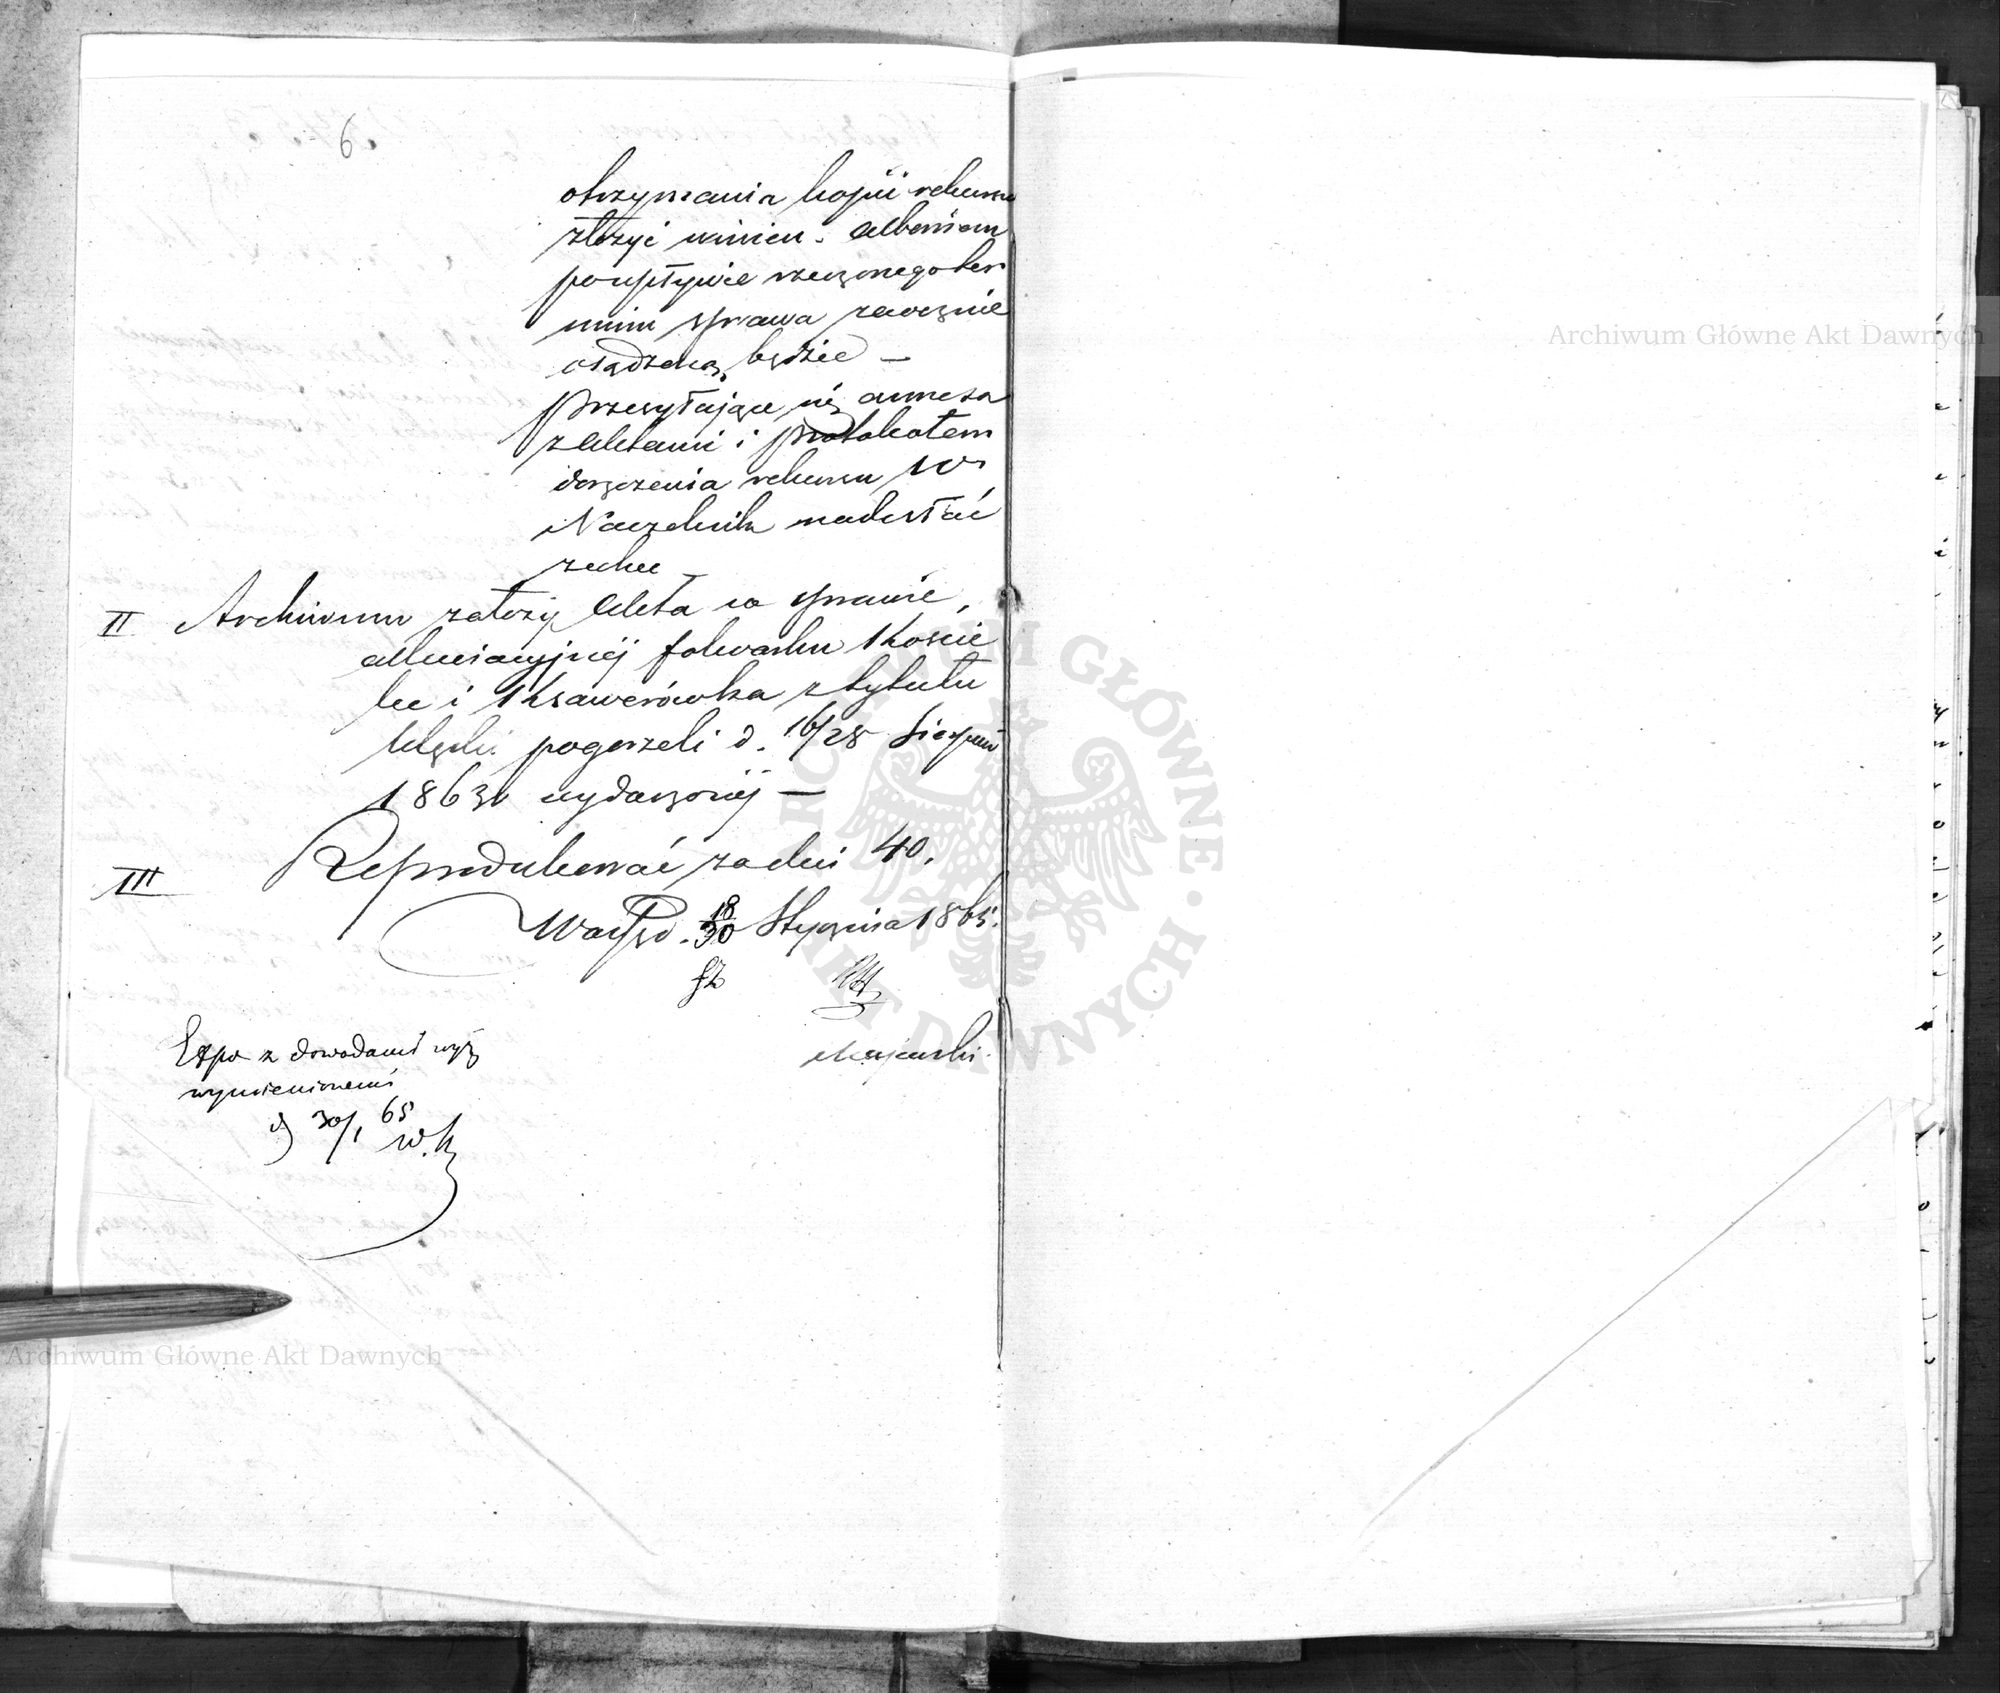 6.
otrzymania kopii rekursu
złożyć winien. albowiem
po upływie rzeczonego ter
minu sprawa zaocznie
osądzoną będzie —
Przesyłające się annexa
z Aktami i protokołem
doręczenia rekursu W
Naczelnik nadesłać
zechce
II Archiwum założy Akta w sprawie
alluviacyjnej folwarku Kosie
i Ksawerówka z tytułu
klęski pogorzeli d. 16/28 Sierpnia
1863 r wydarzonej —
III Reprodukować za dni 40.
Warsz d. 18/30 Stycznia 1865.
Majewski
Expe z dowodami wyż
wymienionemi
d 30/1 65
W.K
Archiwum Główne Akt Dawnych
Archiwum Główne Akt Dawnych
ARCHIWUM GŁÓWNE AKT DAWNYCH